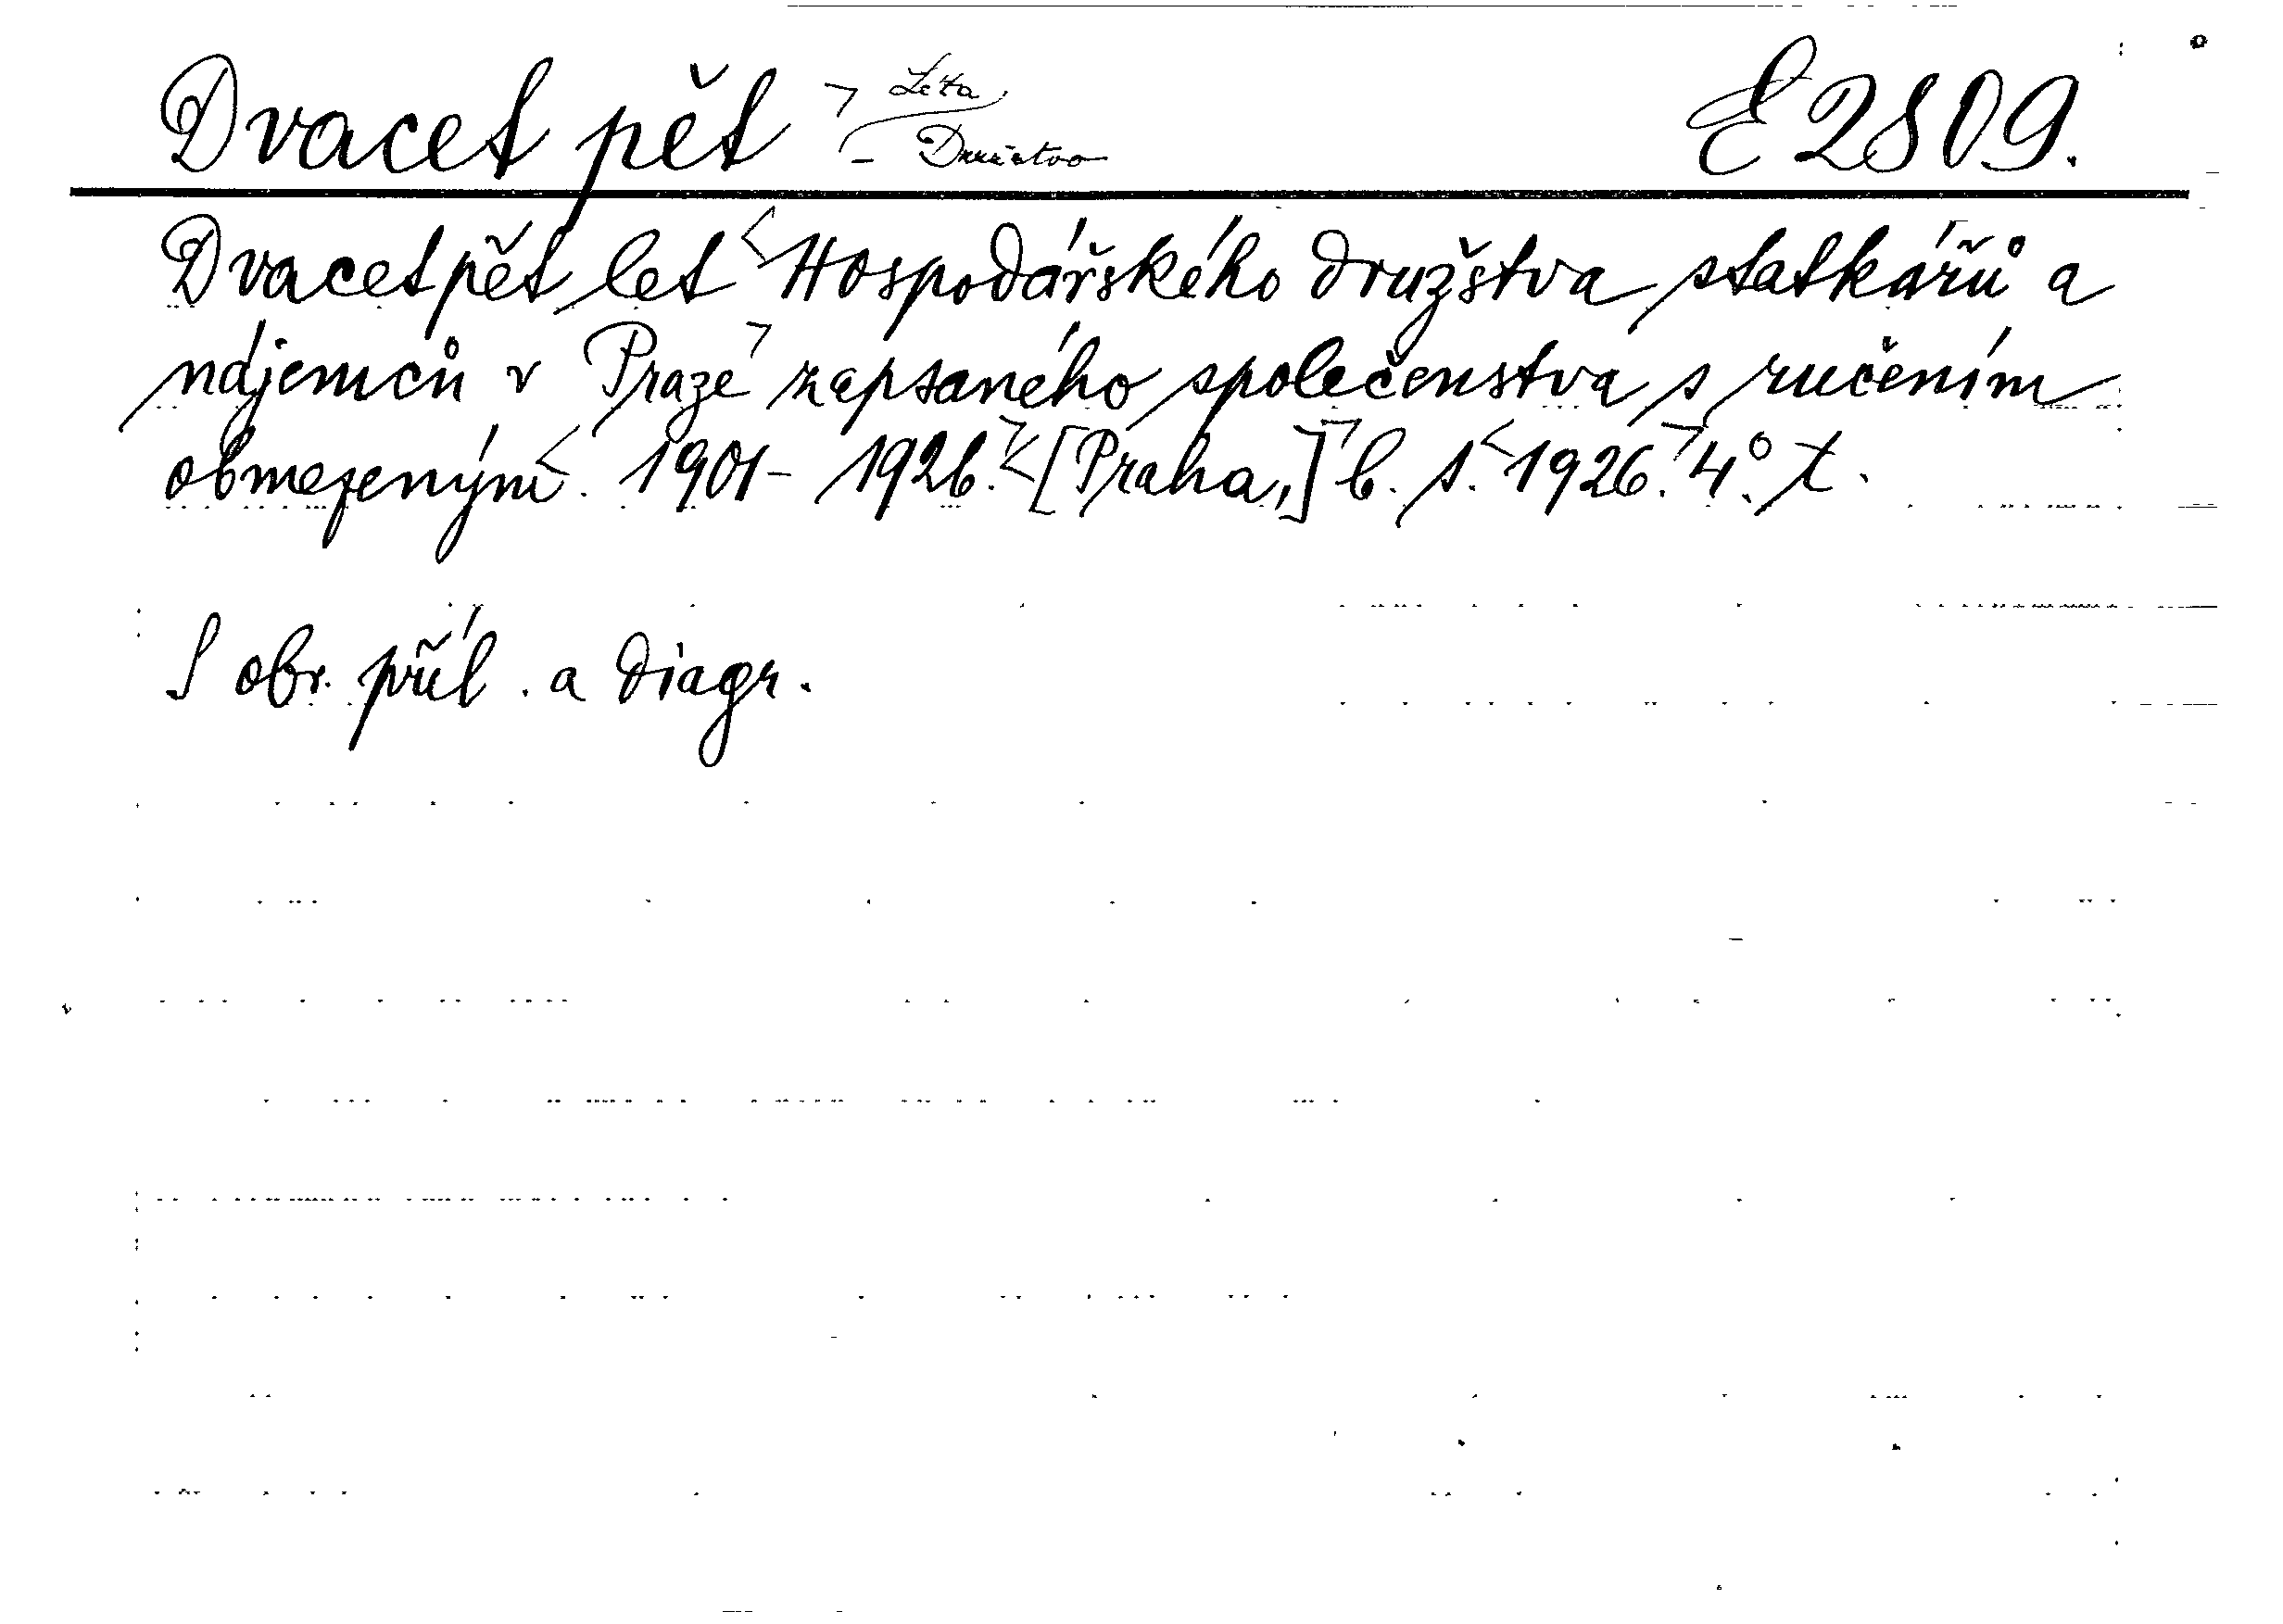 Dvacet pět Léta E 2809.
— Družstvo
Dvacetpět let Hospodářského družstva statkářů a
nájemců v Praze zapsaného společenstva s ručením
obmezeným. 1901-1926. [Praha,] b. t. 1926. 4°. t.
S obr. příl. a diagr.